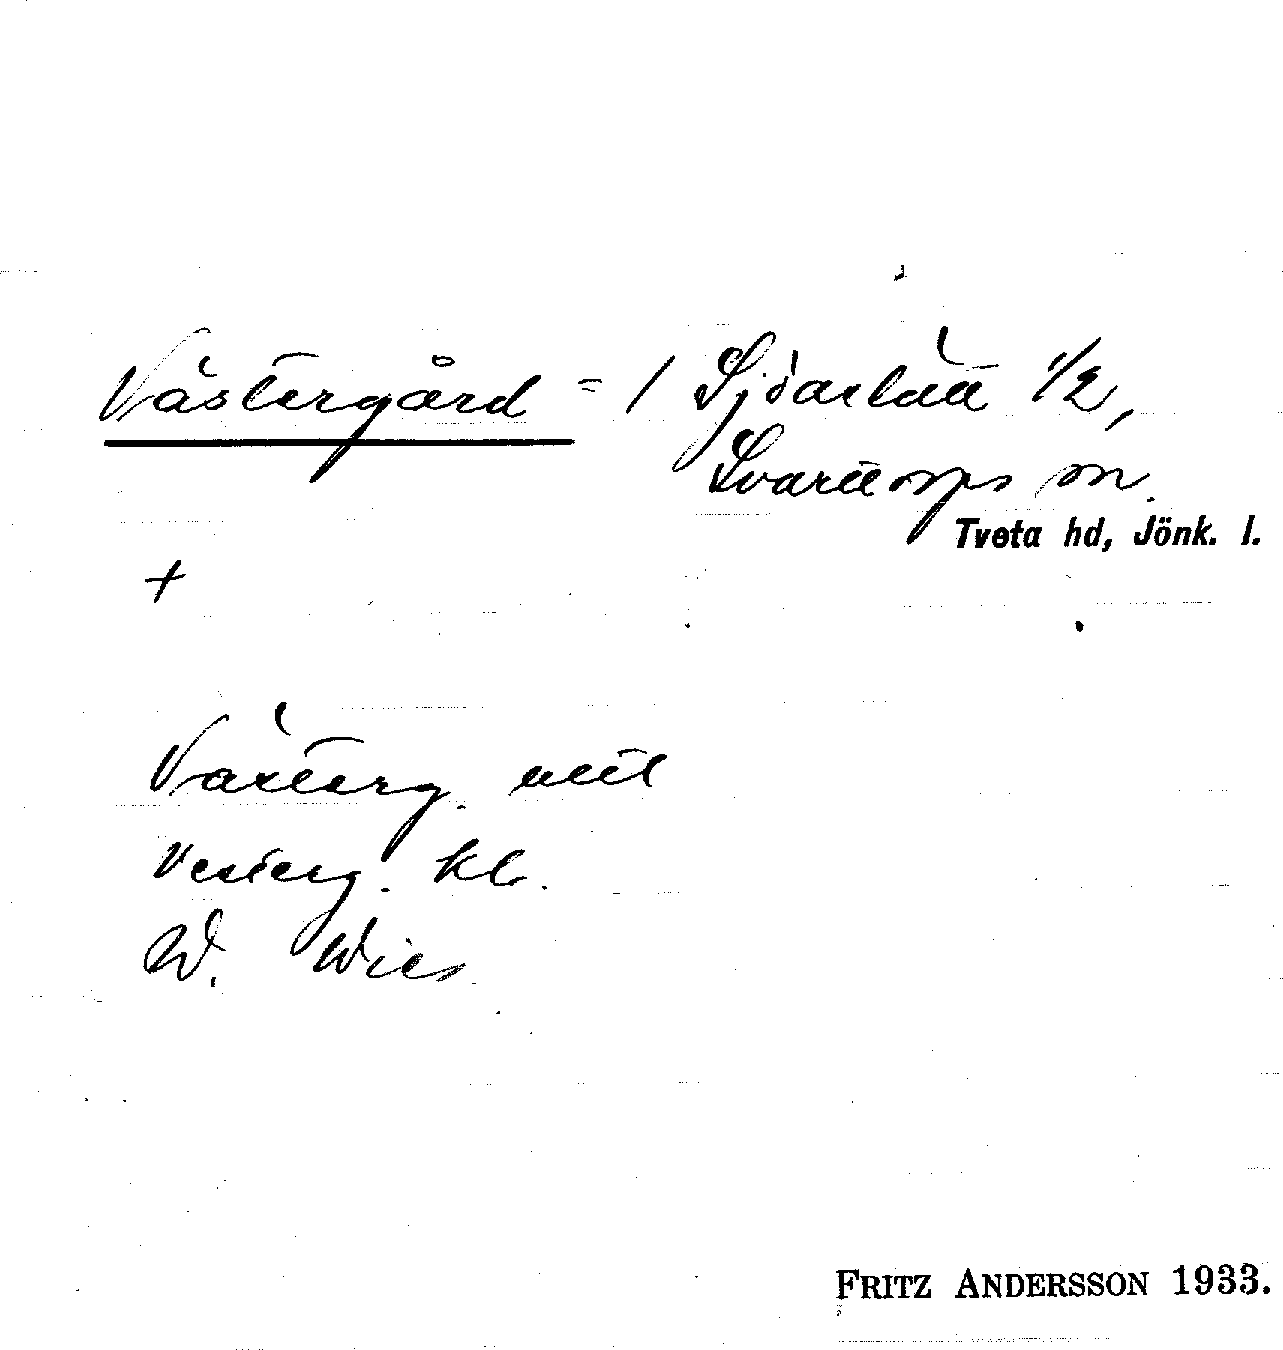 Västergård = / Sjöarlid 1/2,
Svarttorps sn.
Tveta hd, Jönk. l.
+
Västerg.
Vesterg. kb.
W.
FRITZ ANDERSSON 1933.